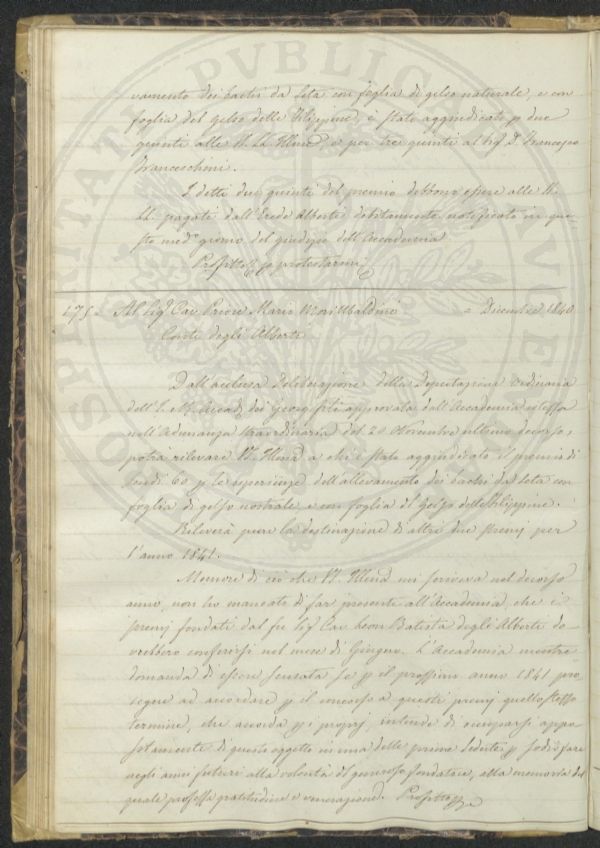 vamento dei bachi da seta con foglia di gelso naturale, e con
foglia del gelso delle Filippine è stato aggiudicato p due
quinti alle LL. Illme, e per tre quinti al Sig. D. Francesco
Franceschini.
I detti due quinti del premio debbono essere alle
LL. pagati dall'Erede Alberti debitamente notificato in que-
sto med° giorno del giudizio dell'Accademia
Profitto & p protestarmi
275 Al Sig. Cav. Priore Mario Mori Ubaldini = Dicembre 1840
Conte degli Alberti
Dall'acclusa Deliberazione della Deputazione Ordinaria
dell' Accad. dei Georgofili approvata dall'Accademia stessa
nell'Adunanza straordinaria del 20 Novembre ultimo decorso,
potrà rilevare V. Illma a chi è stato aggiudicato il premio di
Scudi 60 p le esperienze dell'allevamento dei bachi da seta con
foglia di gelso nostrale, e con foglia di Gelso delle Filippine.
Rileverà pure la destinazione di altri due premj per
l'anno 1841.
Memore di ciò che V. Illma mi scriveva nel decorso
anno, non ho mancato di far presente all'Accademia, che i
premj fondati dal fu Sig. Cav. Leon Batista degli Alberti do-
vrebbero conferirsi nel mese di Giugno. L'Accademia mentre
domanda di essere scusata se p il prossimo anno 1841 pro-
segue ad accordare p il concorso a questi premj quello stesso
termine, che accorda p i proprj, intende di occuparsi appo-
sitamente di questo oggetto in una delle prime sedute p sodisfare
negli anni futuri alla volontà del generoso fondatore, alla memoria del
quale professa gratitudine e venerazione. Profitto &